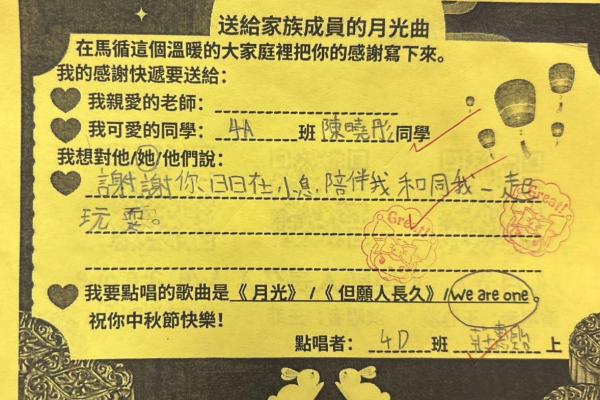 送給家族成員的月光曲
在馬循這個溫暖的大家庭裡把你的感謝寫下來。
我的感謝快遞要送給：
我親愛的老師：
我可愛的同學： 4A 班 陳曉彤 同學
我想對他/她/他們說：
謝謝你、日日在小息、陪伴我和同我一起
玩耍。
Great!
Great!
我要點唱的歌曲是《月光》/《但願人長久》/We are one。
祝你中秋節快樂！
點唱者： 4D 班 上